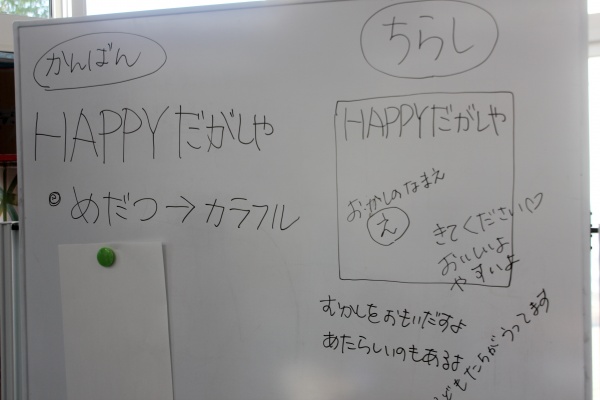 かんばん
HAPPYだがしや
めだつ→カラフル
ちらし
HAPPYだがしや
おかしのなまえ
え
きてください♡
おいしいよ
やすいよ
むかしをおもいだすよ
あたらしいのもあるよ
こどもたちがうってます